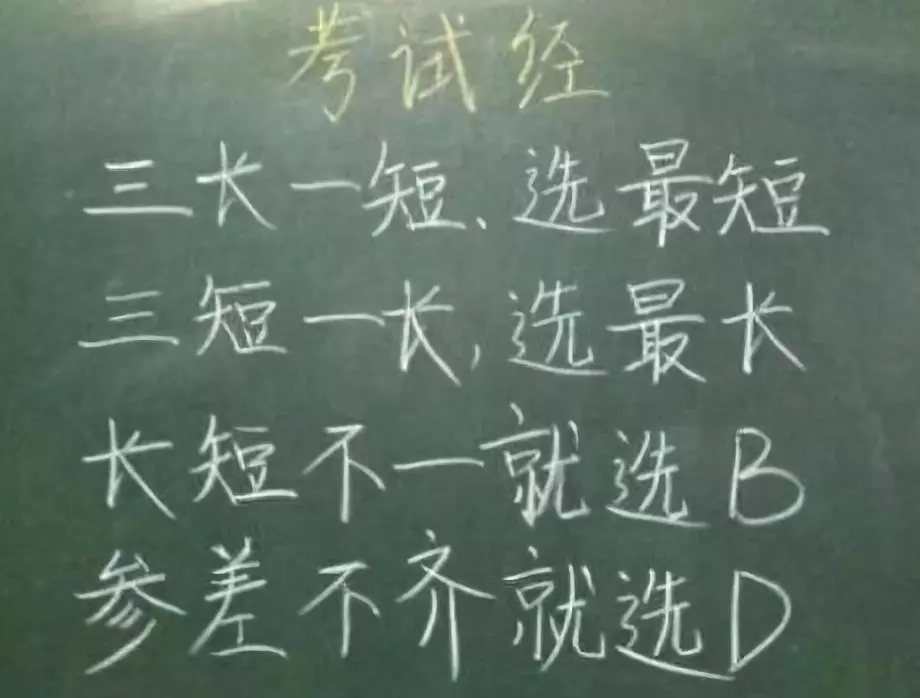 考试经
三长一短、选最短
三短一长,选最长
长短不一就选B
参差不齐就选D